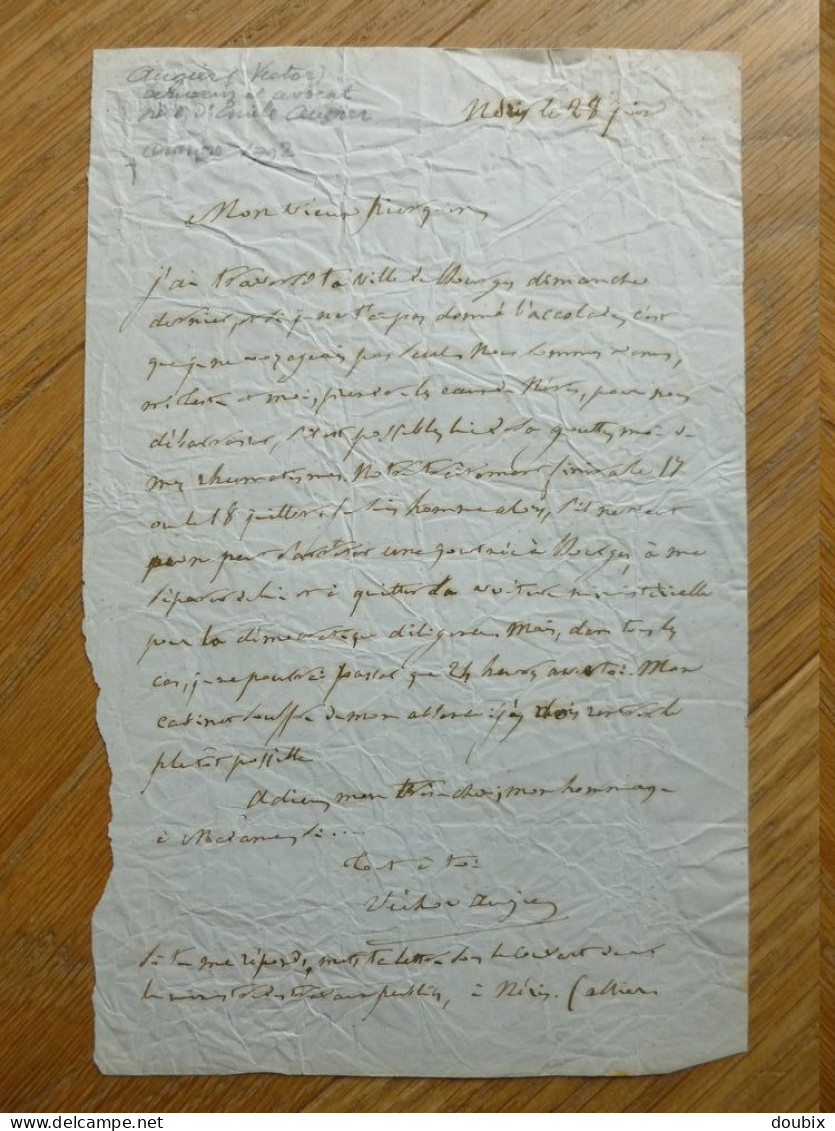 Augier (Victor)
écrivain et avocat
père d'Emile Augier
Néris le 28 juin
Mon vieux
j'ai traversé ta ville de Bourges dimanche
dernier, et si je ne t'ai pas donné l'accolade, c'est
que je ne voyageais pas seul. Nous sommes venus,
et moi, prendre les eaux de Néris, pour nous
débarrasser, s'il est possible, lui de sa goutte, moi de
mes rhumatismes. Notre traitement finira le 17
ou le 18 juillet. Je suis homme alors, s'il ne veut
pas une journée à Bourges, à me
séparer de lui et à quitter la voiture ministérielle
pour la démocratique diligence. Mais, dans tous les
cas, je ne pourrai passer que 24 heures avec toi. Mon
cabinet souffre de mon absence et j'y dois rentrer le
plutôt possible
Adieu, mon très cher, mon hommage
à Madame, si ....
Tout à toi
Victor Augier
Si tu me réponds, mets ta lettre sous le couvert de
ministre des travaux publics, à Néris. (allier